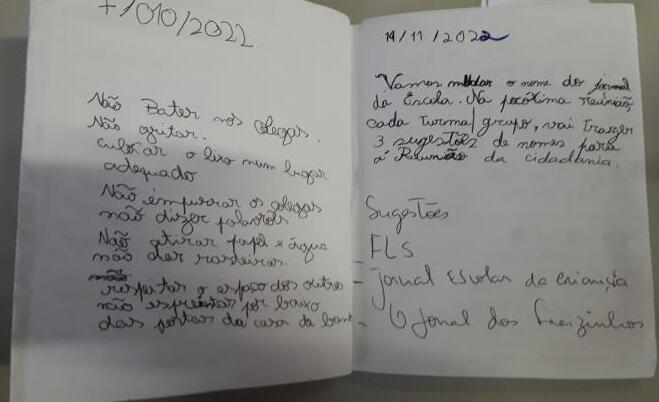 +/010/2022
Não Bater nos colegas.
Não gritar.
culocar o lixo num lugar
adequado
Não empurrar os colegas
não dizer palavrões
Não atirar papel e água
não dar rasteiras.
respeitar o espaço dos outros
não espreitar por baixo
das portas da casa da banh
14/11/2022
Vamos mudar o nome do jornal
da Escola. Na pocótima reunião,
cada turma/grupo, vai trazer
3 sugestões de nomes para
a Reunião da cidadania.
Sugestões
- FLS
- jornal Escolar da criança
- O Jonal dos Freizinhos